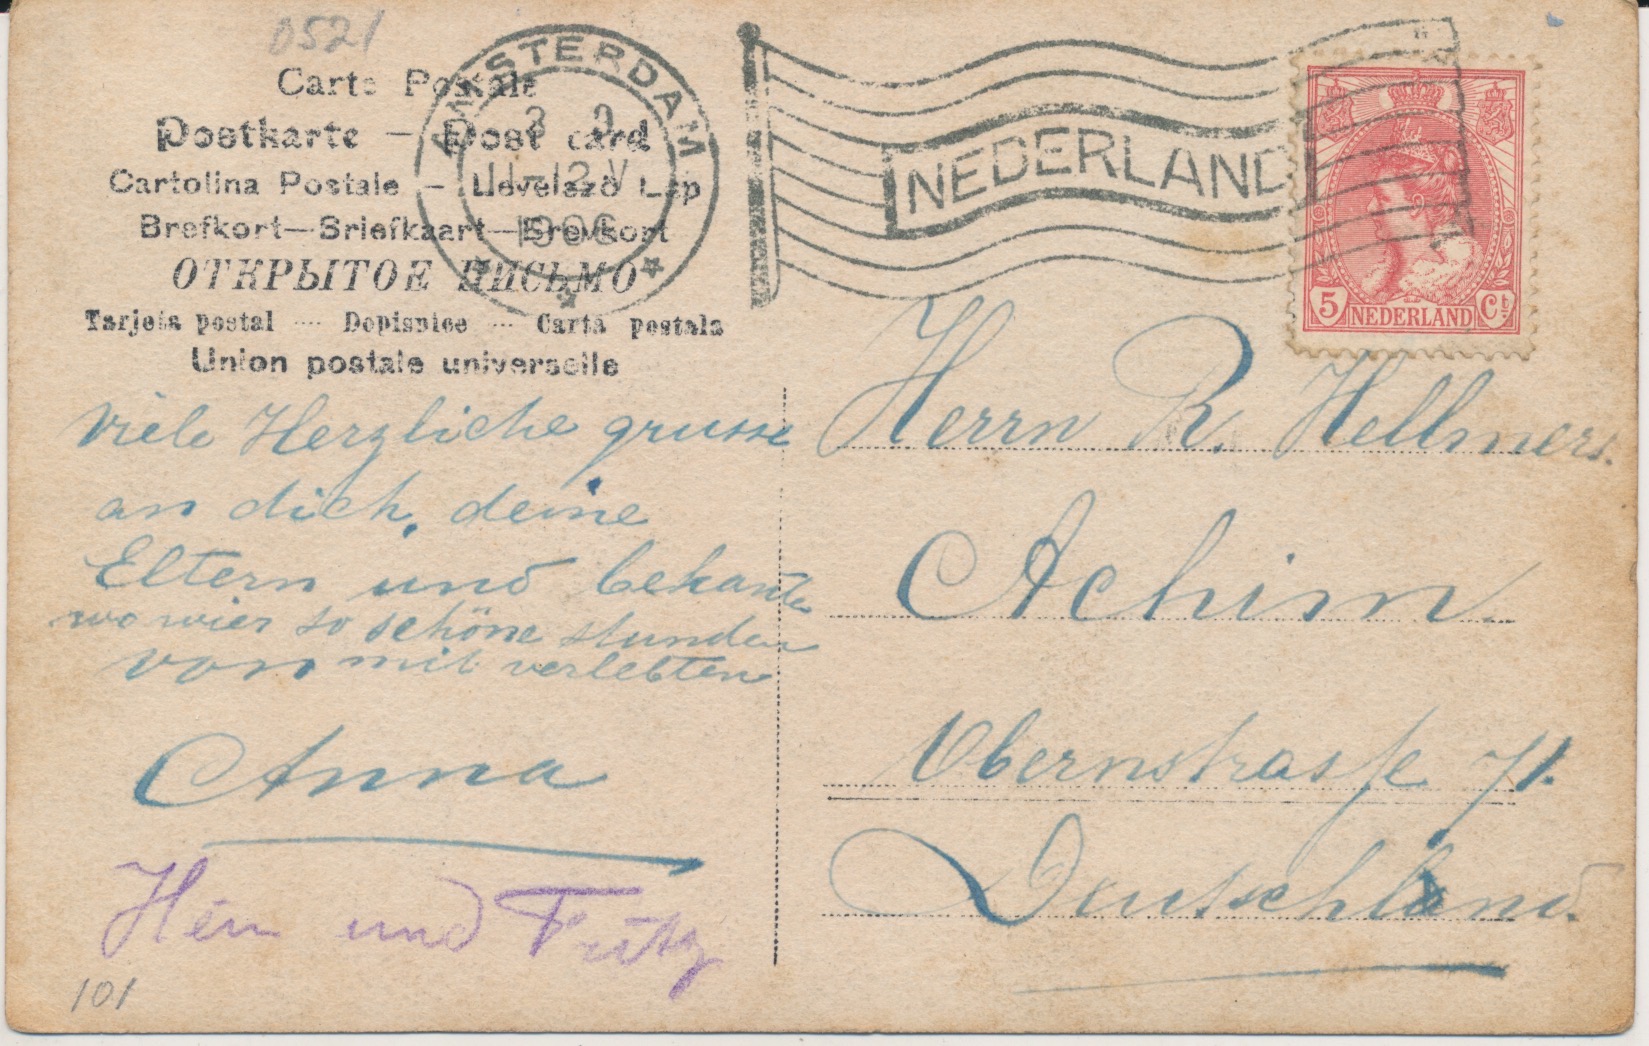 0521
Carte Postale
Postkarte — Post card
Cartolina Postale — Levelező Lap
Brefkort—Briefkaart—Brevkort
ОТКРЫТОЕ ПИСЬМО
Tarjeta postal — Dopisnice — Carta postala
Union postale universelle
AMSTERDAM
3 9
11-12 V
1906
NEDERLAND
5 NEDERLAND Ct
viele Herzliche grusse
an dich, deine
Eltern und bekante
wo wier so schöne stunden
von mit verlebten
Anna
Hein und Fritz
101
Herrn R. Hellmers.
Achim.
Obernstrasse 71.
Deutschland.